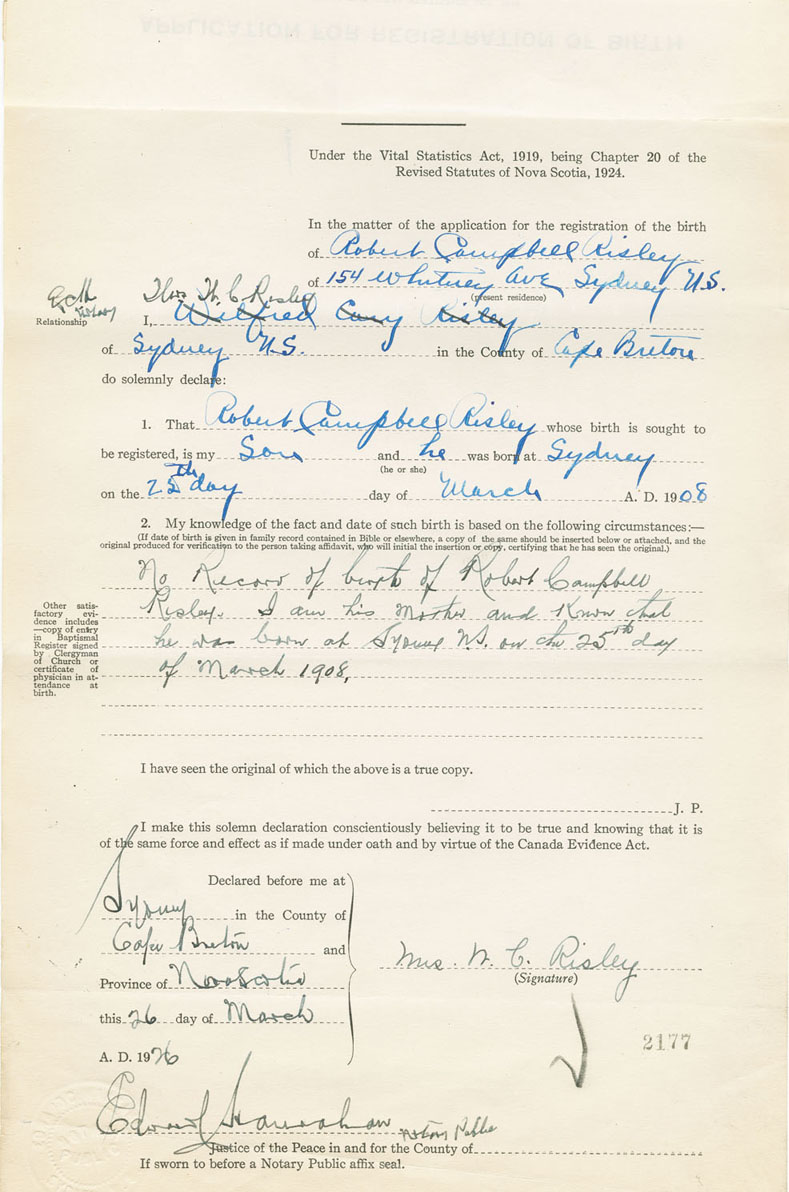 APPLICATION FOR REGISTRATION OF BIRTH
Under the Vital Statistics Act, 1919, being Chapter 20 of the
Revised Statutes of Nova Scotia, 1924.
In the matter of the application for the registration of the birth
of Robert Campbell Risley
of 154 Whitney Ave Sydney N.S.
(present residence)
Relationship
Mrs. W. C. Risley
I, Wilfred Risley
of Sydney N.S. in the County of Cape Breton
do solemnly declare:
1. That Robert Campbell Risley whose birth is sought to
be registered, is my Son and he was born at Sydney
(he or she)
on the 25th day day of March A. D. 1908
2. My knowledge of the fact and date of such birth is based on the following circumstances:—
(If date of birth is given in family record contained in Bible or elsewhere, a copy of the same should be inserted below or attached, and the
original produced for verification to the person taking affidavit, who will initial the insertion or copy, certifying that he has seen the original.)
No Record of birth of Robert Campbell
Risley. I am his Mother and Know that
he was born at Sydney N.S. on the 25th day
of March 1908,
Other satis-
factory evi-
dence includes
—copy of entry
in Baptismal
Register signed
by Clergyman
of Church or
certificate of
physician in at-
tendance at
birth.
I have seen the original of which the above is a true copy.
J. P.
I make this solemn declaration conscientiously believing it to be true and knowing that it is
of the same force and effect as if made under oath and by virtue of the Canada Evidence Act.
Declared before me at
Sydney in the County of
Cape Breton and
Province of Nova Scotia
this 26 day of March
A. D. 1926
Mrs. W. C. Risley
(Signature)
2177
Edward Notary Public
Justice of the Peace in and for the County of
If sworn to before a Notary Public affix seal.